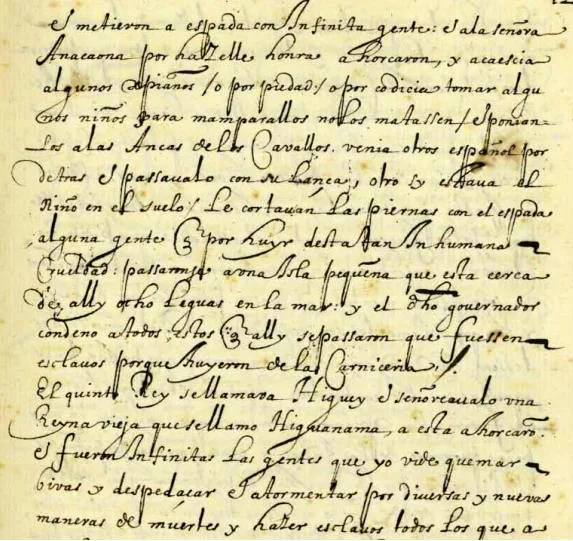 E metieron a espada con Infinita gente: E ala señora
Anacaona por hazelle honra ahorcaron, y acaescia
algunos xpianos / o por piedad: / o por codicia tomar algu
nos niños para mamparallos no los matassen / E ponian
los alas Ancas de los Cavallos. venia otros español por
detras E passavalo con su Lança, otro sy estava el
Niño en el suelo / Le cortavan Las piernas con el espada
alguna gente q por huyr desta tan Inhumana
Crueldad: passaronse a vna Isla pequena que esta cerca
de ally ocho Leguas en la mar: y el dho governador
condeno a todos estos q ally se passaron que fuessen
esclavos porque huyeron de la Carniceria, /.
El quinto Rey se llamava Higuey E señoreavalo vna
Reyna vieja que se llamo Higuanama, a esta ahorcarõ.
E fueron Infinitas Las gentes que yo vide quemar
bivas y despedaçar E atormentar por diversas y nuevas
maneras de muertes y hazer esclavos todos Los que a